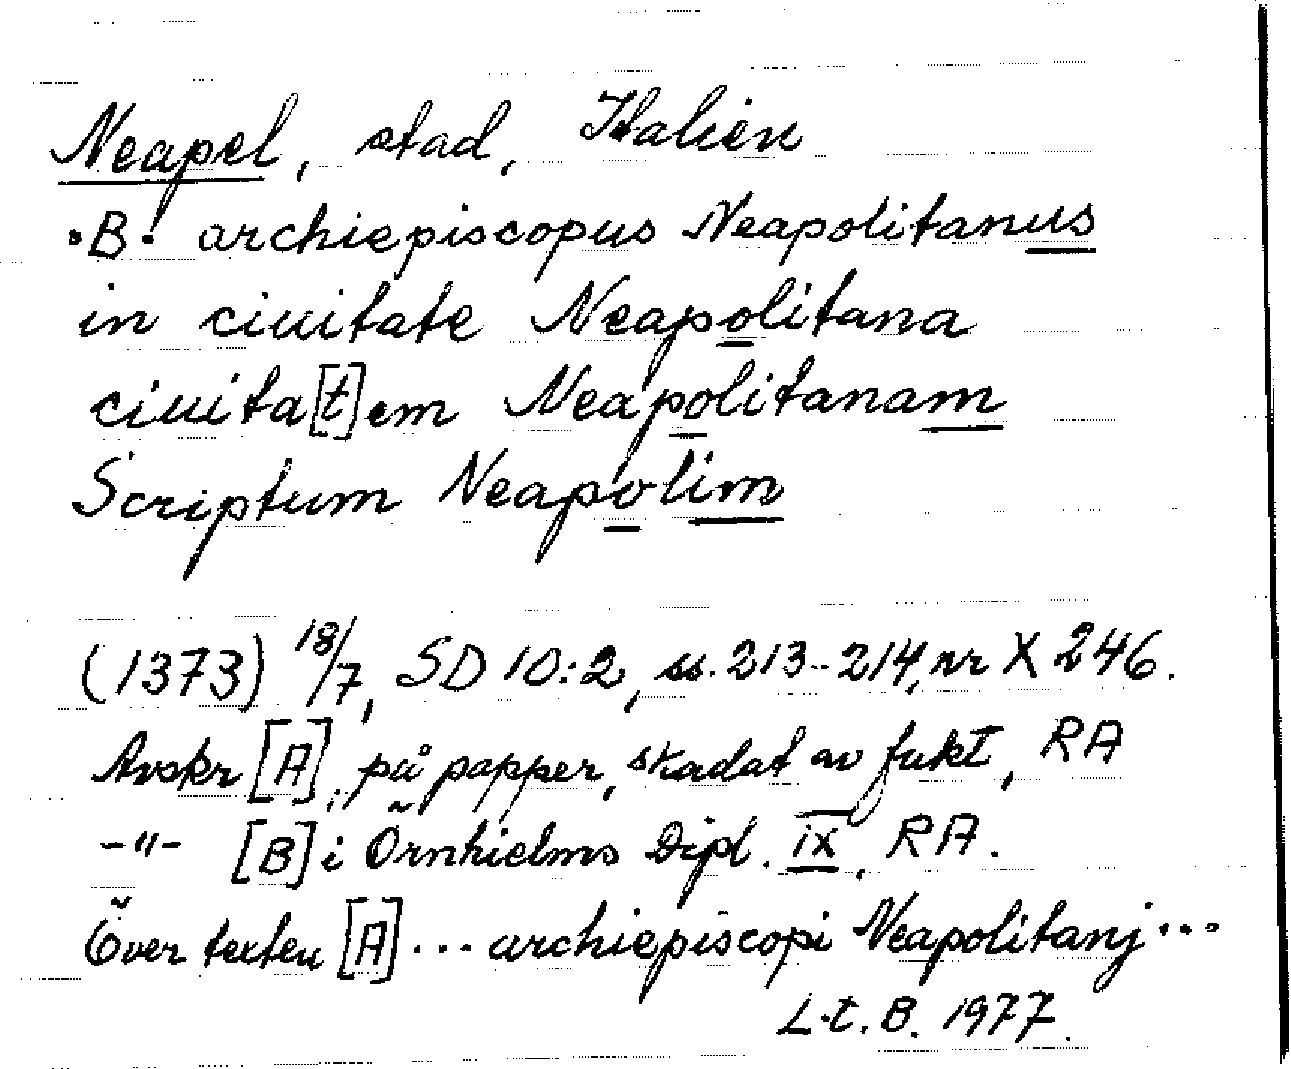 Neapel, stad, Italien
·B· archiepiscopus Neapolitanus
in ciuitate Neapolitana
ciuita[t]em Neapolitanam
Scriptum Neapolim
(1373) 18/7, SD 10:2, ss. 213-214, nr X 246.
Avskr [A], på papper, skadat av fukt, RA
-"- [B] i Örnhielms Dipl. IX, RA.
Över texten [A] ... archiepiscopi Neapolitanj ...
L.t.B. 1977.